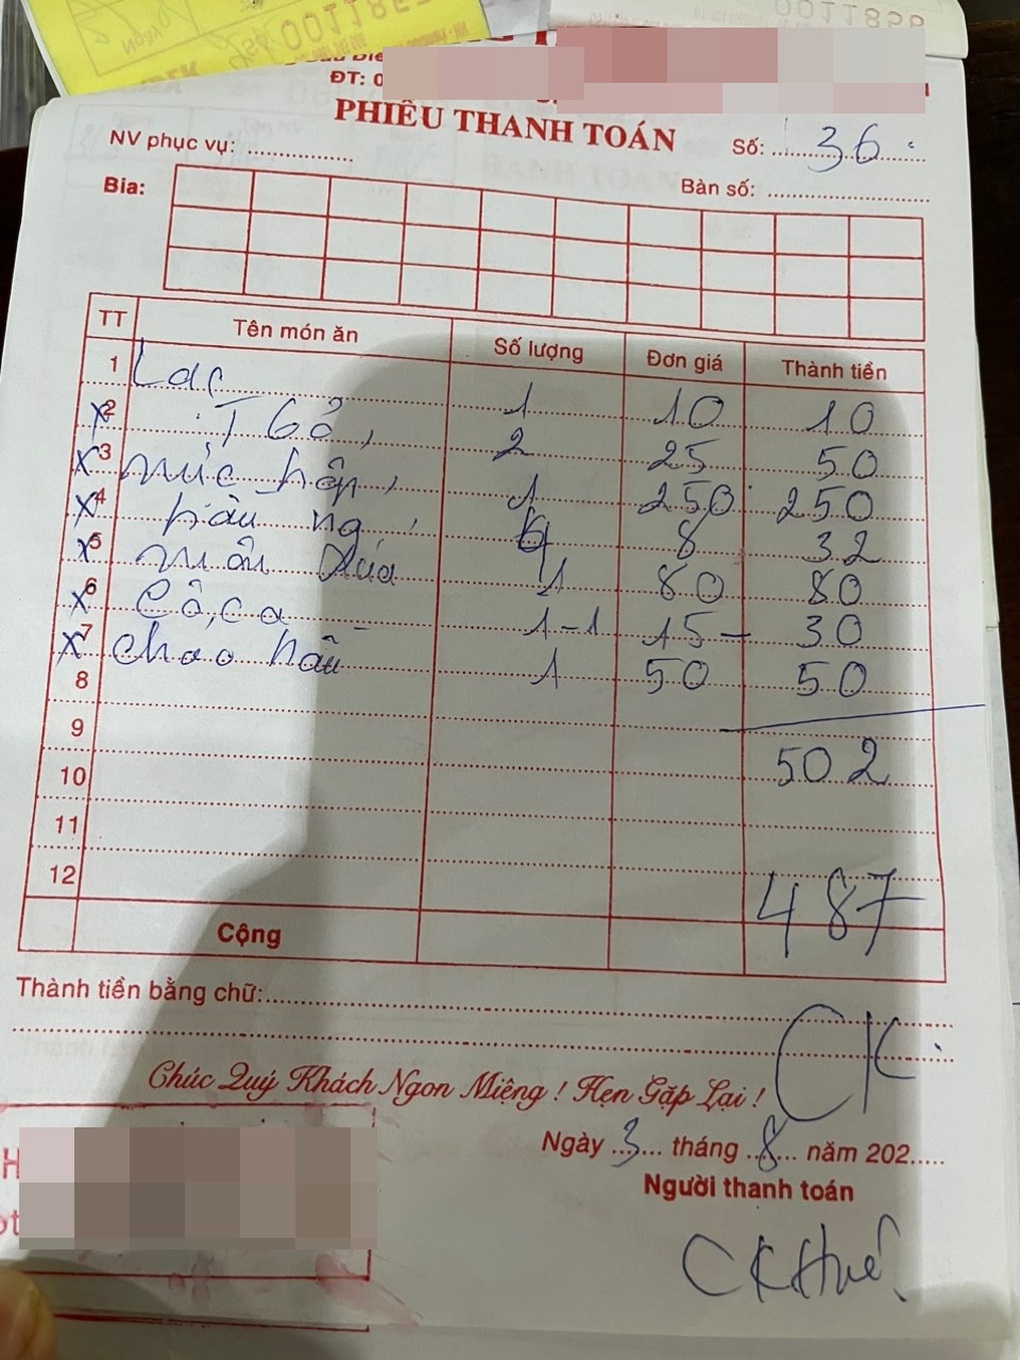 0011856
Ngày
Số 0011857
ĐT: 0
PHIẾU THANH TOÁN
NV phục vụ: Số: 36
Bia: Bàn số:
TT Tên món ăn Số lượng Đơn giá Thành tiền
1 Lạc 1 10 10
x2 T Gỏ, 2 25 50
x3 mực hấp, 1 250 250
x4 hàu ng, 4 8 32
x5 1 80 80
x6 Cô, ca - 1-1 15- 30
x7 chao hàu 1 50 50
8
9
502
10
11
12
487
Cộng
Thành tiền bằng chữ:
CK.
Chúc Quý Khách Ngon Miệng ! Hẹn Gặp Lại !
Ngày 3 tháng 8 năm 202
Người thanh toán
CK Huế.